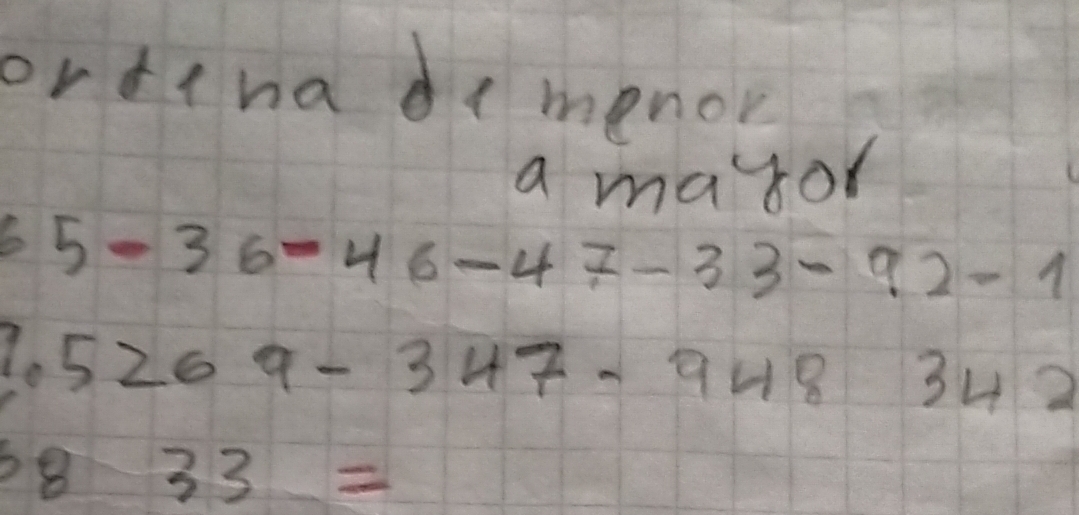 ordena de menor
a mayor
65-36-46-47-33-92-1
7.5269-347-948 342
68 33 =